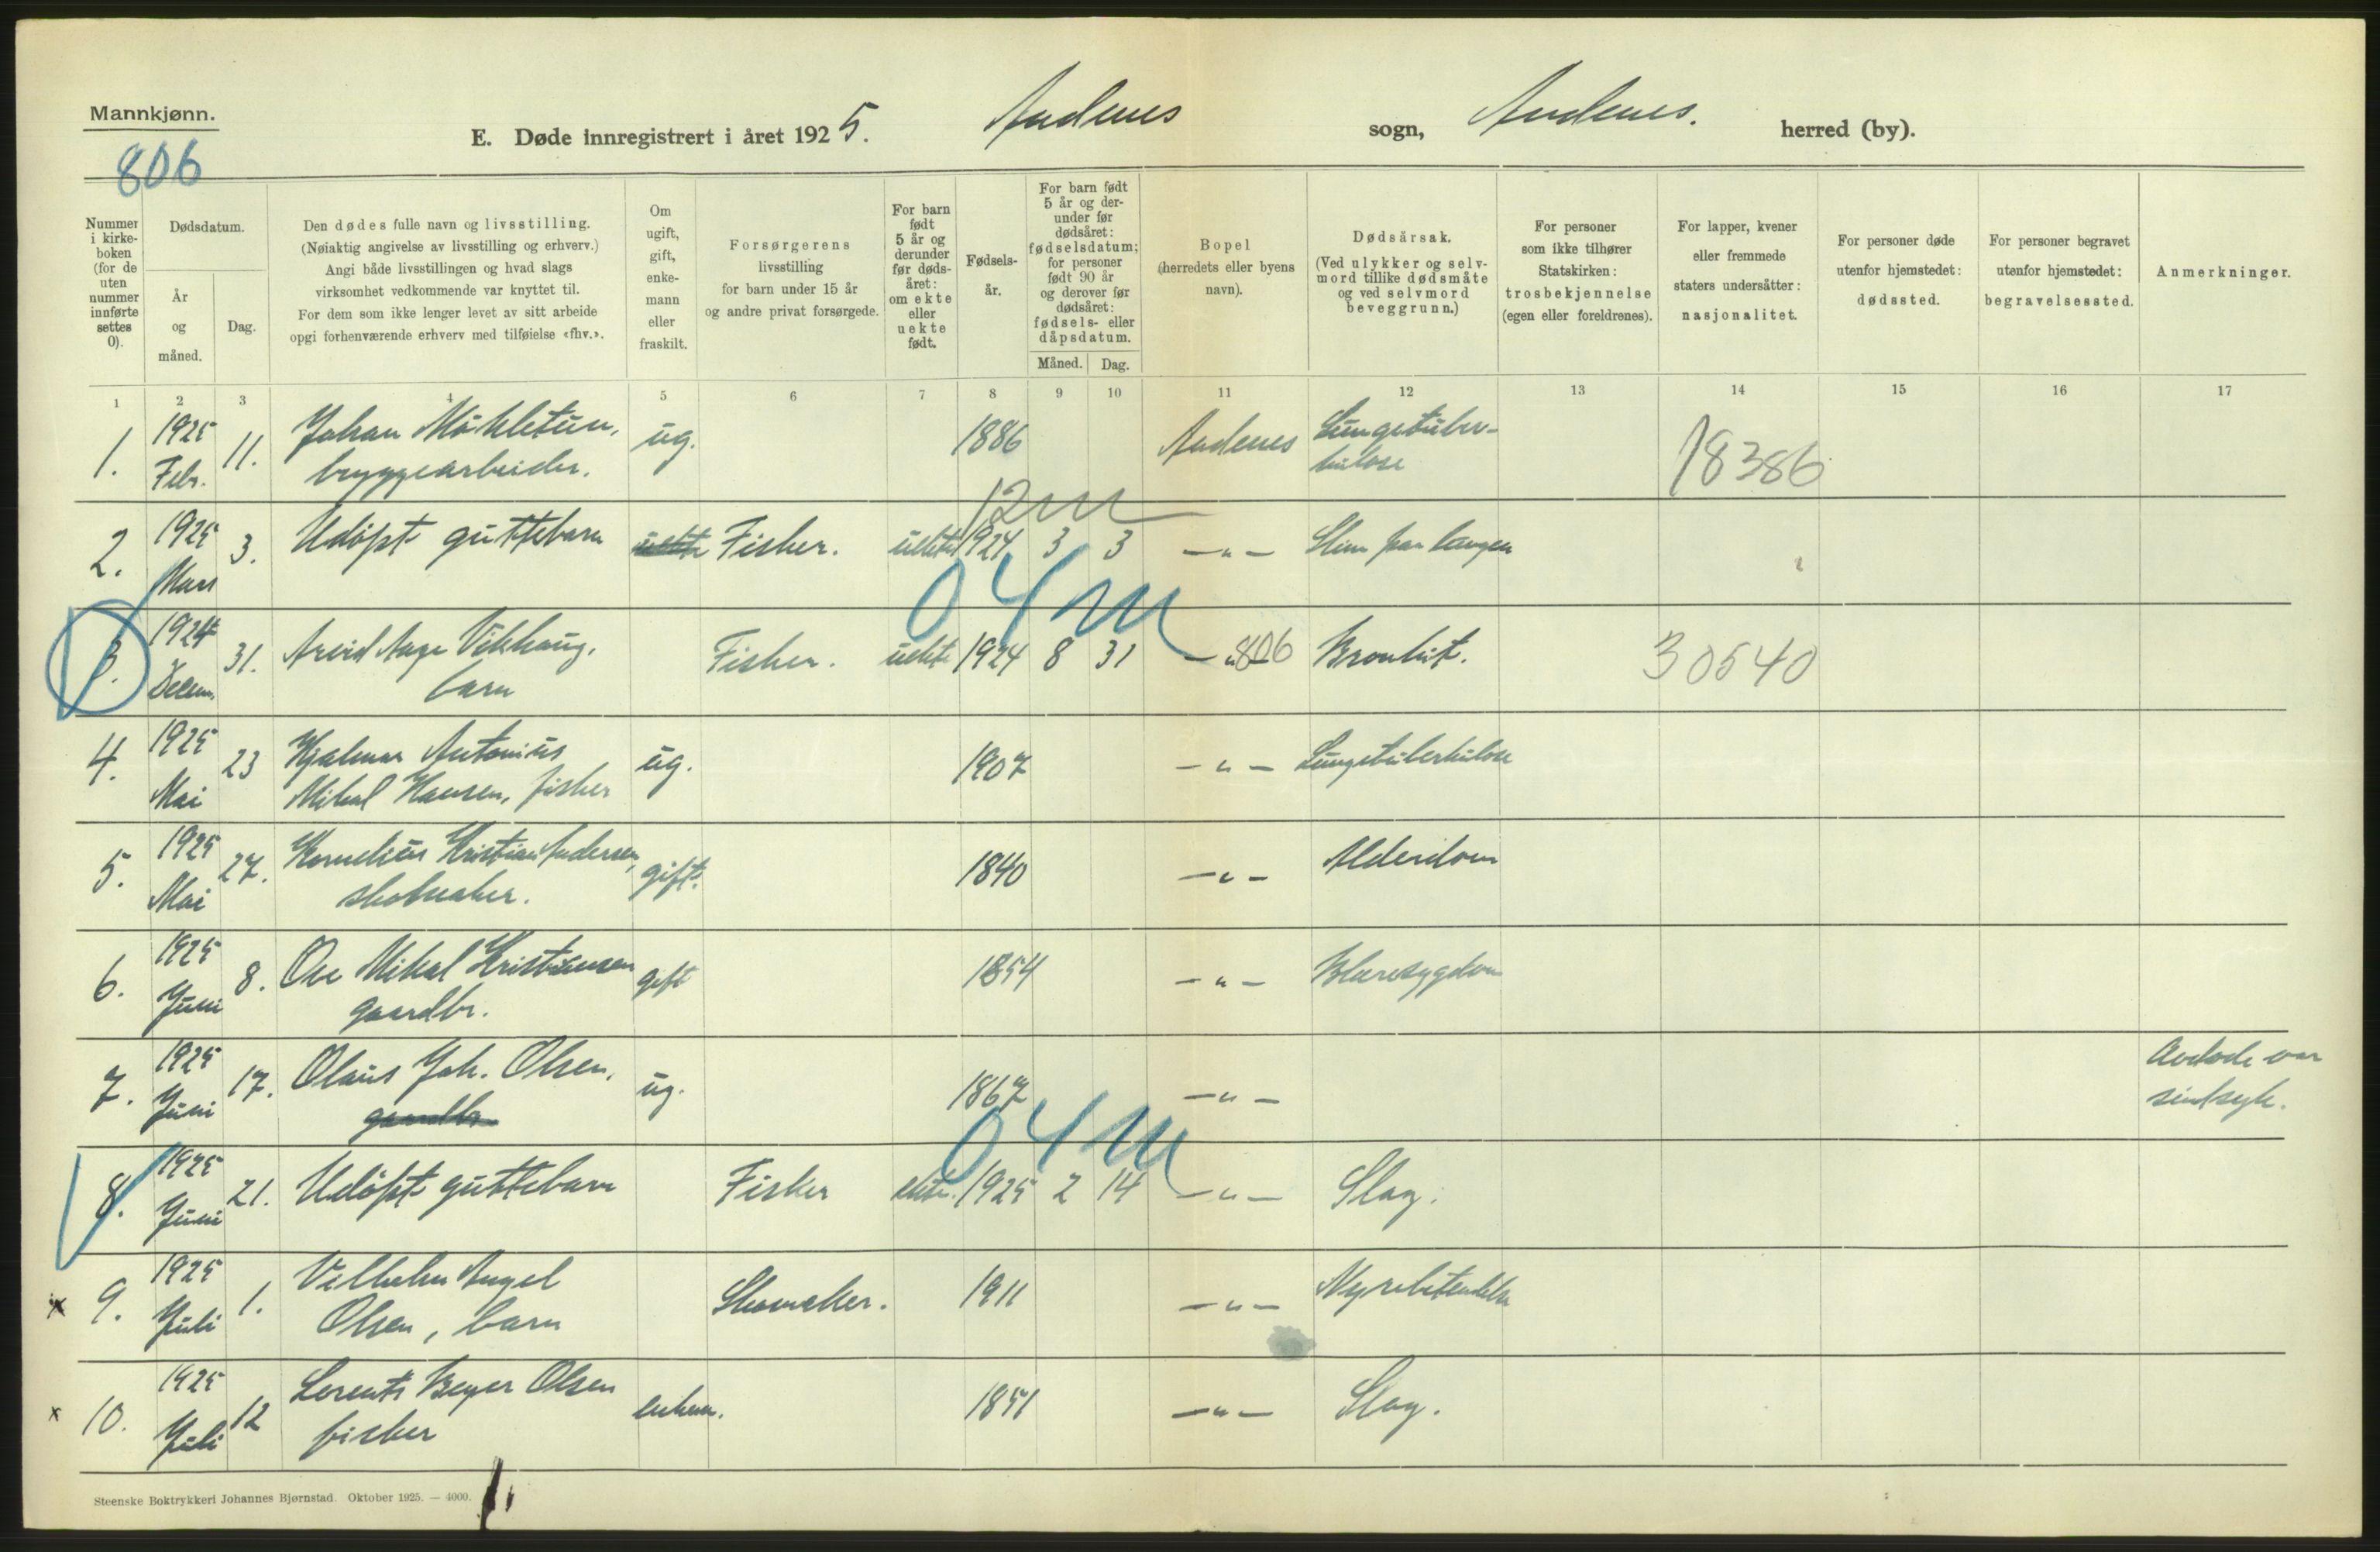 Mannkjønn.
806
E. Døde innregistrert i året 1925. Andenes sogn, Andenes. herred (by).
Nummer i kirke- boken (for de uten nummer innførte settes 0).
Dødsdatum.
År og måned.
Dag.
Den dødes fulle navn og livsstilling.
(Nøiaktig angivelse av livsstilling og erhverv.)
Angi både livsstillingen og hvad slags
virksomhet vedkommende var knyttet til.
For dem som ikke lenger levet av sitt arbeide
opgi forhenværende erhverv med tilføielse «fhv.».
Om ugift, gift, enke- mann eller fraskilt.
Forsørgerens
livsstilling
for barn under 15 år
og andre privat forsørgede.
For barn født 5 år og derunder før døds- året: om ekte eller uekte født.
Fødsels- år.
For barn født 5 år og der- under før dødsåret: fødselsdatum; for personer født 90 år og derover før dødsåret: fødsels- eller dåpsdatum.
Måned. Dag.
Bopel
(herredets eller byens
navn).
Dødsårsak.
(Ved ulykker og selv-
mord tillike dødsmåte
og ved selvmord
beveggrunn.)
For personer
som ikke tilhører
Statskirken:
trosbekjennelse
(egen eller foreldrenes).
For lapper, kvener
eller fremmede
staters undersåtter:
nasjonalitet.
For personer døde
utenfor hjemstedet:
dødssted.
For personer begravet
utenfor hjemstedet:
begravelsessted.
Anmerkninger.
1 2 3 4 5 6 7 8 9 10 11 12 13 14 15 16 17
1. 1925 Febr. 11. Johan Mikletun, ug. 1886 Andenes Lungetuber-
bryggearbeider. kulose
18386
12 m
2. 1925 Mars 3. Udöpt guttebarn uekte Fisker. uekte 1924 3 3 — " — Slim paa lungen
04 m
3. 1924 Decem. 31. Arvid Aage Vikhaug, Fisker. uekte 1924 8 31 — " — 806 Bronkit. 30540
barn
4. 1925 Mai 23 Hjalmar Antonius ug. 1907 — " — Lungetuberkulose
Mikal Hansen, fisker
5. 1925 Mai 27. Kornelius Kristian Andersen, gift. 1840 — " — Alderdom
skomaker.
6. 1925 Juni 8. Ole Mikal Kristiansen gift 1854 — " — Blæresygdom
gaardbr.
7. 1925 Juni 17. Olaus Joh. Olsen, ug. 1867 — " — Avdøde var
gaardbr. sindsyk.
04 m
8. 1925 Juni 21. Udöpt guttebarn Fisker ekte. 1925 2 14 — " — Slag.
x 9. 1925 Juli 1. Vilhelm Angel Skomaker. 1911 — " — Nyrebetendelse
Olsen, barn
x 10. 1925 Juli 12 Lorents Beyer Olsen enkem. 1851 — " — Slag.
fisker
Steenske Boktrykkeri Johannes Bjørnstad. Oktober 1925. — 4000.